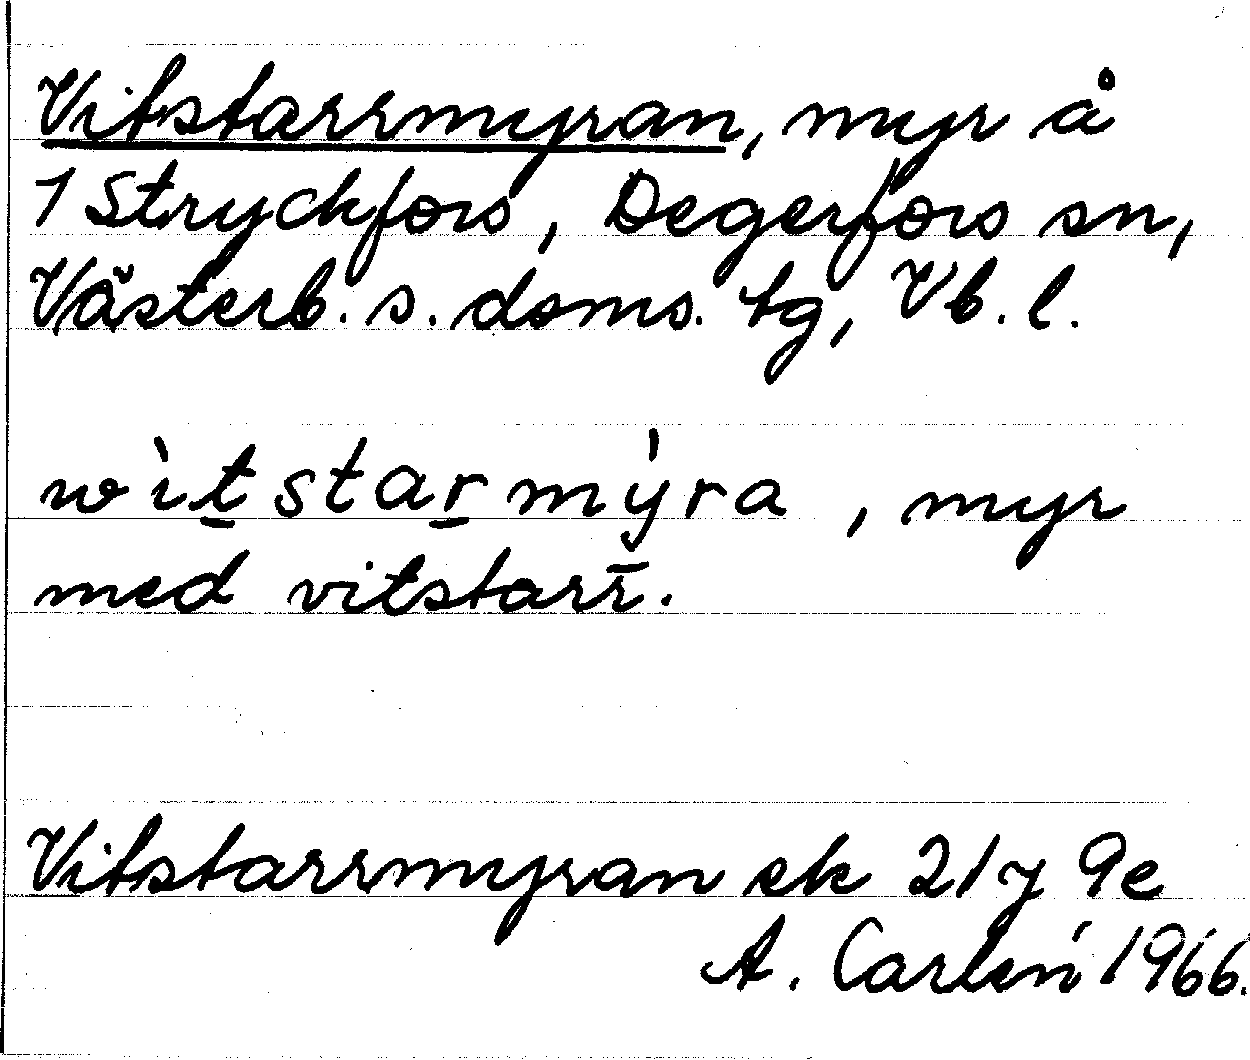 Vitstarrmyran, myr å
1 Stryckfors, Degerfors sn,
Västerb. s. doms. tg, Vb. l.
wìt̲star̲mýra, myr
med vitstarr̄.
Vitstarrmyran ek 21 7 9e
A. Carlén 1966.